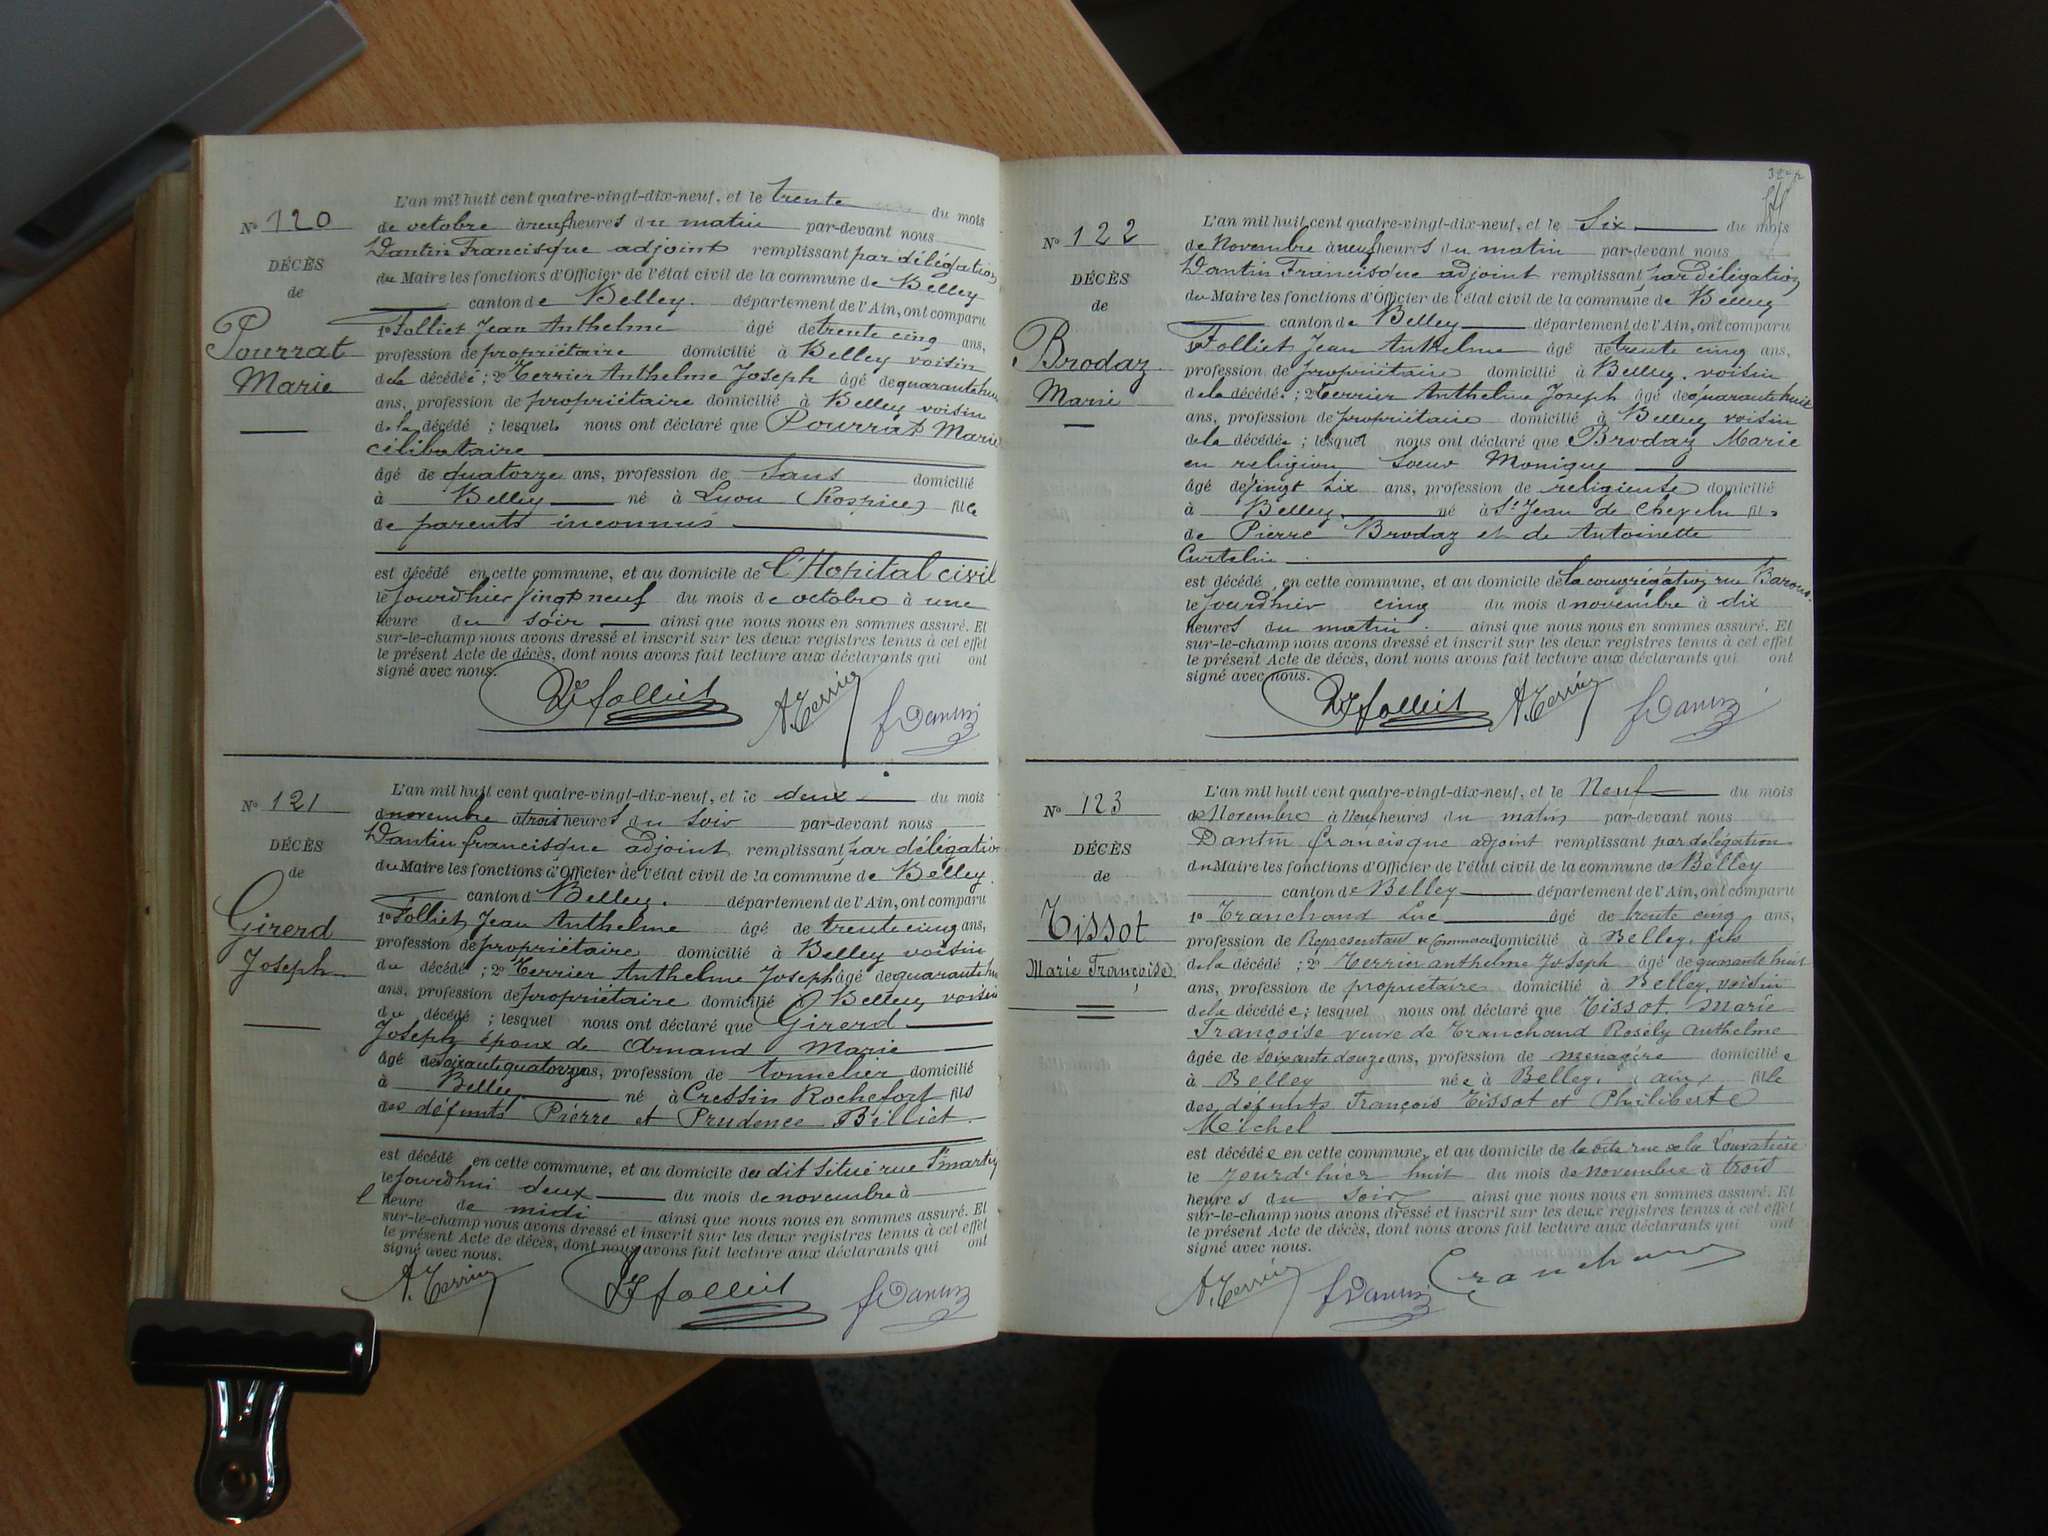 L'an mil huit cent quatre-vingt-dix-neuf, et le trente du mois
de octobre à neuf heures du matin par-devant nous
Dantin Francisque adjoint remplissant par délégation
du Maire les fonctions d'Officier de l'état civil de la commune de Belley
canton de Belley. département de l'Ain, ont comparu
1º Folliet Jean Anthelme âgé de trente cinq ans,
profession de propriétaire domicilié à Belley voisin
de la décédée ; 2º Terrier Anthelme Joseph âgé de quarante huit
ans, profession de propriétaire domicilié à Belley voisin
de la décédé ; lesquels nous ont déclaré que Pourrat Marie
célibataire
âgé de quatorze ans, profession de sans domicilié
à Belley né à Lyon (Hospice) fille
de parents inconnus
est décédé en cette commune, et au domicile de l'Hopital civil
le jourdhier vingt neuf du mois de octobre à une
heure du soir ainsi que nous nous en sommes assuré. Et
sur-le-champ nous avons dressé et inscrit sur les deux registres tenus à cet effet
le présent Acte de décès, dont nous avons fait lecture aux déclarants qui ont
signé avec nous.
Nº 120
DÉCÈS
de
Pourrat
Marie
Folliet A. Terrier F Dantin
L'an mil huit cent quatre-vingt-dix-neuf, et le deux du mois
de novembre à trois heures du soir par-devant nous
Dantin francisque adjoint remplissant par délégation
du Maire les fonctions d'Officier de l'état civil de la commune de Belley
canton d Belley. département de l'Ain, ont comparu
1º Folliet Jean Anthelme âgé de trente cinq ans,
profession de propriétaire domicilié à Belley voisin
du décédé ; 2º Terrier Anthelme Joseph âgé de quarante huit
ans, profession de propriétaire domicilié à Belley voisin
du décédé ; lesquel nous ont déclaré que Girerd
Joseph époux de Arnand Marie
âgé de soixante quatorze ans, profession de tonnelier domicilié
à Belley né à Cressin Rochefort fils
des défunts Pierre et Prudence Billiet.
est décédé en cette commune, et au domicile du dit situé rue St martin
le jourdhui deux du mois de novembre à
l heure de midi ainsi que nous nous en sommes assuré. Et
sur-le-champ nous avons dressé et inscrit sur les deux registres tenus à cet effet
le présent Acte de décès, dont nous avons fait lecture aux déclarants qui ont
signé avec nous.
Nº 121
DÉCÈS
de
Girerd
Joseph
A. Terrier Folliet F Dantin
L'an mil huit cent quatre-vingt-dix-neuf, et le Six du mois
de Novembre à neuf heures du matin par-devant nous
Dantin Francisque adjoint remplissant par délégation
du Maire les fonctions d'Officier de l'état civil de la commune de Belley
canton de Belley département de l'Ain, ont comparu
1º Folliet Jean Anthelme âgé de trente cinq ans,
profession de propriétaire domicilié à Belley. voisin
de la décédé. ; 2º Terrier Anthelme Joseph âgé de quarante huit
ans, profession de propriétaire domicilié à Belley voisin
de la décédée ; lesquel nous ont déclaré que Brodaz Marie
en religion Soeur Monique
âgé de vingt six ans, profession de religieuse domicilié
à Belley né à St Jean de Chevelu fille
de Pierre Brodaz et de Antoinette
Curtelin
est décédé en cette commune, et au domicile de la congrégation rue Barons
le jourdhier cinq du mois d novembre à dix
heures du matin. ainsi que nous nous en sommes assuré. Et
sur-le-champ nous avons dressé et inscrit sur les deux registres tenus à cet effet
le présent Acte de décès, dont nous avons fait lecture aux déclarants qui ont
signé avec nous.
Nº 122
DÉCÈS
de
Brodaz
Marie
Folliet A. Terrier F Dantin
L'an mil huit cent quatre-vingt-dix-neuf, et le Neuf du mois
de Novembre à Neuf heures du matin par-devant nous
Dantin francisque adjoint remplissant par délégation
du Maire les fonctions d'Officier de l'état civil de la commune de Belley
canton de Belley département de l'Ain, ont comparu
1º Tranchand Luc âgé de trente cinq ans,
profession de Représentant de Commerce domicilié à Belley, fils
de la décédé ; 2º Terrier anthelme Joseph âgé de quarante huit
ans, profession de propriétaire domicilié à Belley, voisin
de la décédée ; lesquel nous ont déclaré que Tissot Marie
Françoise veuve de Tranchand Rosély Anthelme
âgée de soixante douze ans, profession de ménagère domiciliée
à Belley née à Belley, (ain) fille
des défunts François Tissot et Philiberte
Michel
est décédée en cette commune, et au domicile de la dite rue de la Louvatière
le jourd'hier huit du mois de novembre à trois
heures du soir ainsi que nous nous en sommes assuré. Et
sur-le-champ nous avons dressé et inscrit sur les deux registres tenus à cet effet
le présent Acte de décès, dont nous avons fait lecture aux déclarants qui ont
signé avec nous.
Nº 123
DÉCÈS
de
Tissot
Marie Françoise
A. Terrier F Dantin Tranchand